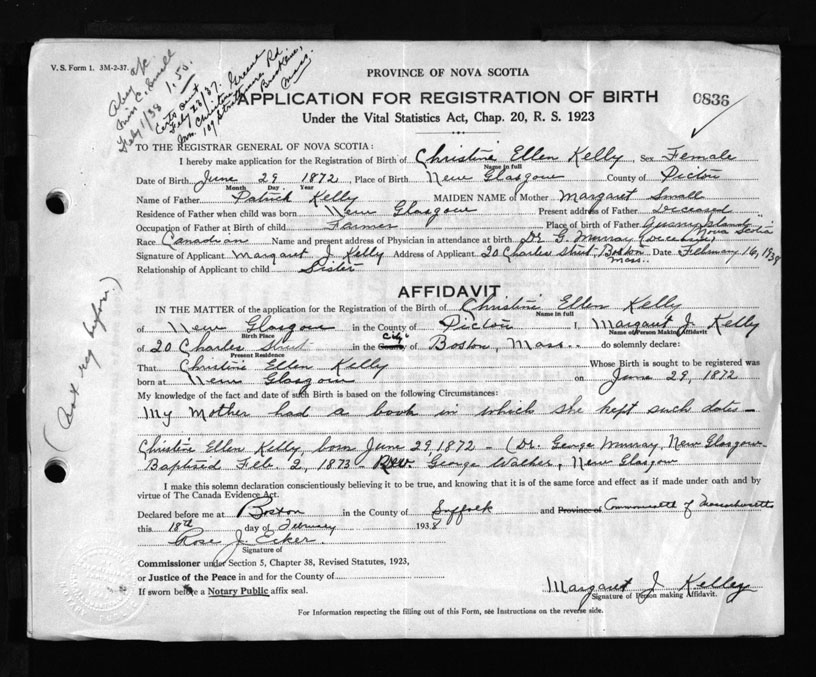 V. S. Form 1. 3M-2-37.
Miss C. Small
Feby 1/38 1.50
Certs sent
Feby 23/37.
Christine Greene
109 Strathmore Rd.
Brookline,
Mass.
PROVINCE OF NOVA SCOTIA
APPLICATION FOR REGISTRATION OF BIRTH
0836
Under the Vital Statistics Act, Chap. 20, R. S. 1923
TO THE REGISTRAR GENERAL OF NOVA SCOTIA:
I hereby make application for the Registration of Birth of Christine Ellen Kelly, Sex Female
Name in full
Date of Birth June 29 1872, Place of Birth New Glasgow County of Pictou
Month Day. Year
Name of Father Patrick Kelly MAIDEN NAME of Mother Margaret Small
Residence of Father when child was born New Glasgow Present address of Father Deceased
Occupation of Father at Birth of child Farmer Place of birth of Father Island Nova Scotia
Race Canadian Name and present address of Physician in attendance at birth Dr G. Murray (deceased)
Signature of Applicant Margaret J. Kelly Address of Applicant 20 Charles Street, Boston Mass. Date February 16, 1938
Relationship of Applicant to child Sister
AFFIDAVIT
IN THE MATTER of the application for the Registration of the Birth of Christine Ellen Kelly
Name in full
of New Glasgow in the County of Pictou I, Margaret J. Kelly
Birth Place Name of Person Making Affidavit
of 20 Charles Street in the County City of Boston, Mass.. do solemnly declare:
Present Residence
That Christine Ellen Kelly Whose Birth is sought to be registered was
born at New Glasgow on June 29, 1872
My knowledge of the fact and date of such Birth is based on the following Circumstances:
My Mother had a book in which she kept such dates —
Christine Ellen Kelly, born June 29 1872 - (Dr. George Murray, New Glasgow-
Baptised Feb. 2, 1873 - Rev. George Walker, New Glasgow
I make this solemn declaration conscientiously believing it to be true, and knowing that it is of the same force and effect as if made under oath and by
virtue of The Canada Evidence Act.
Declared before me at Boston in the County of Suffolk and Province of Commonwealth of Massachusetts
this 18th day of February 1938
Rose J. Ecker.
Signature of
Commissioner under Section 5, Chapter 38, Revised Statutes, 1923,
or Justice of the Peace in and for the County of
If sworn before a Notary Public affix seal.
Margaret J. Kelley
Signature of Person making Affidavit.
For Information respecting the filling out of this Form, see Instructions on the reverse side.
(not reg before.)